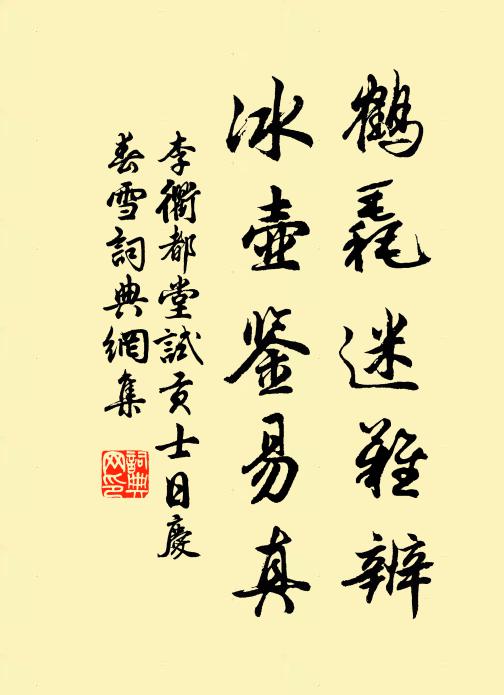 鶴毳迷難辨
冰壺鉴易真
李衢都堂試貢士日慶
春雪詞典網集
詞典
网印